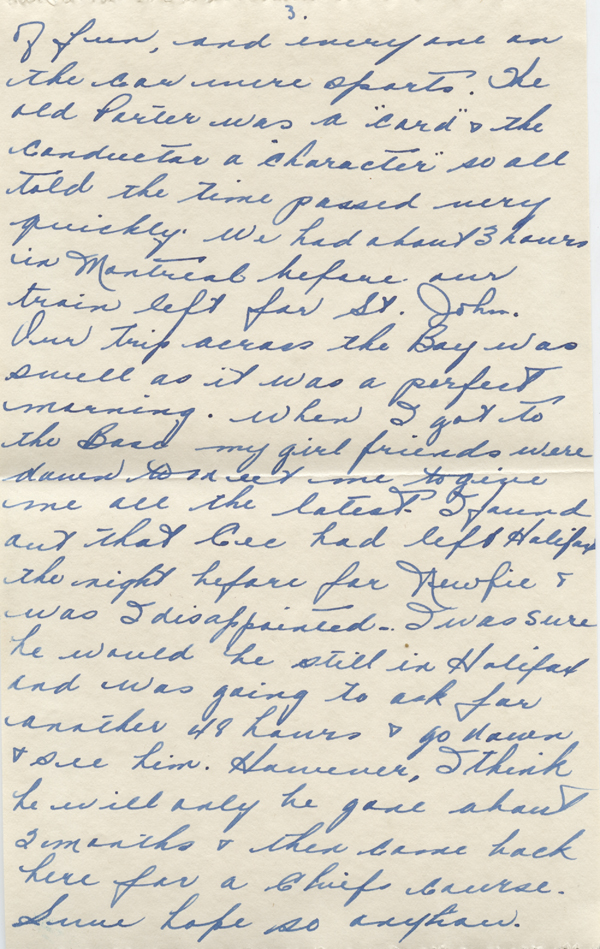 3.
of fun, and everyone on
the car were sports. The
old Porter was a "card" & the
conductor a "character" so all
told the time passed very
quickly. We had about 3 hours
in Montreal before our
train left for St. John.
Our trip across the Bay was
swell as it was a perfect
morning. When I got to
the Base my girl friends were
down to meet me to give
me all the latest. I found
out that Cec had left Halifax
the night before for Newfie &
was I disappointed -. I was sure
he would be still in Halifax
and was going to ask for
another 48 hours & go down
& see him. However, I think
he will only be gone about
2 months & then come back
here for a Chiefs course.
Sure hope so anyhow.